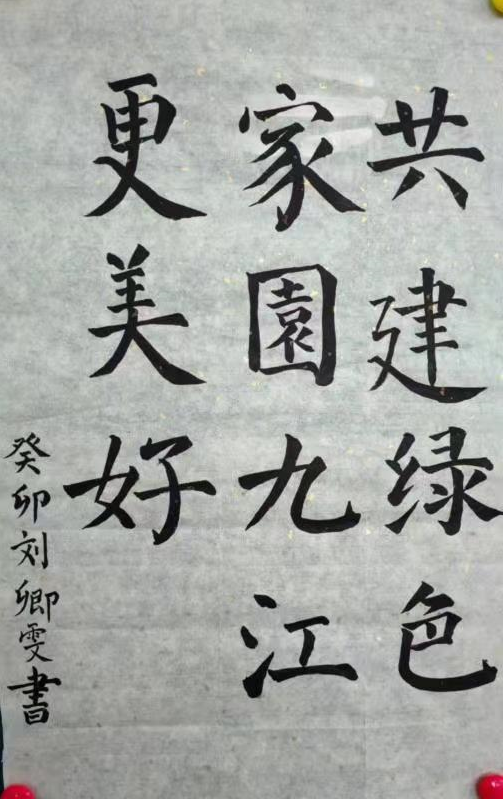 共建绿色
家園九江
更美好
癸卯刘卿雯書